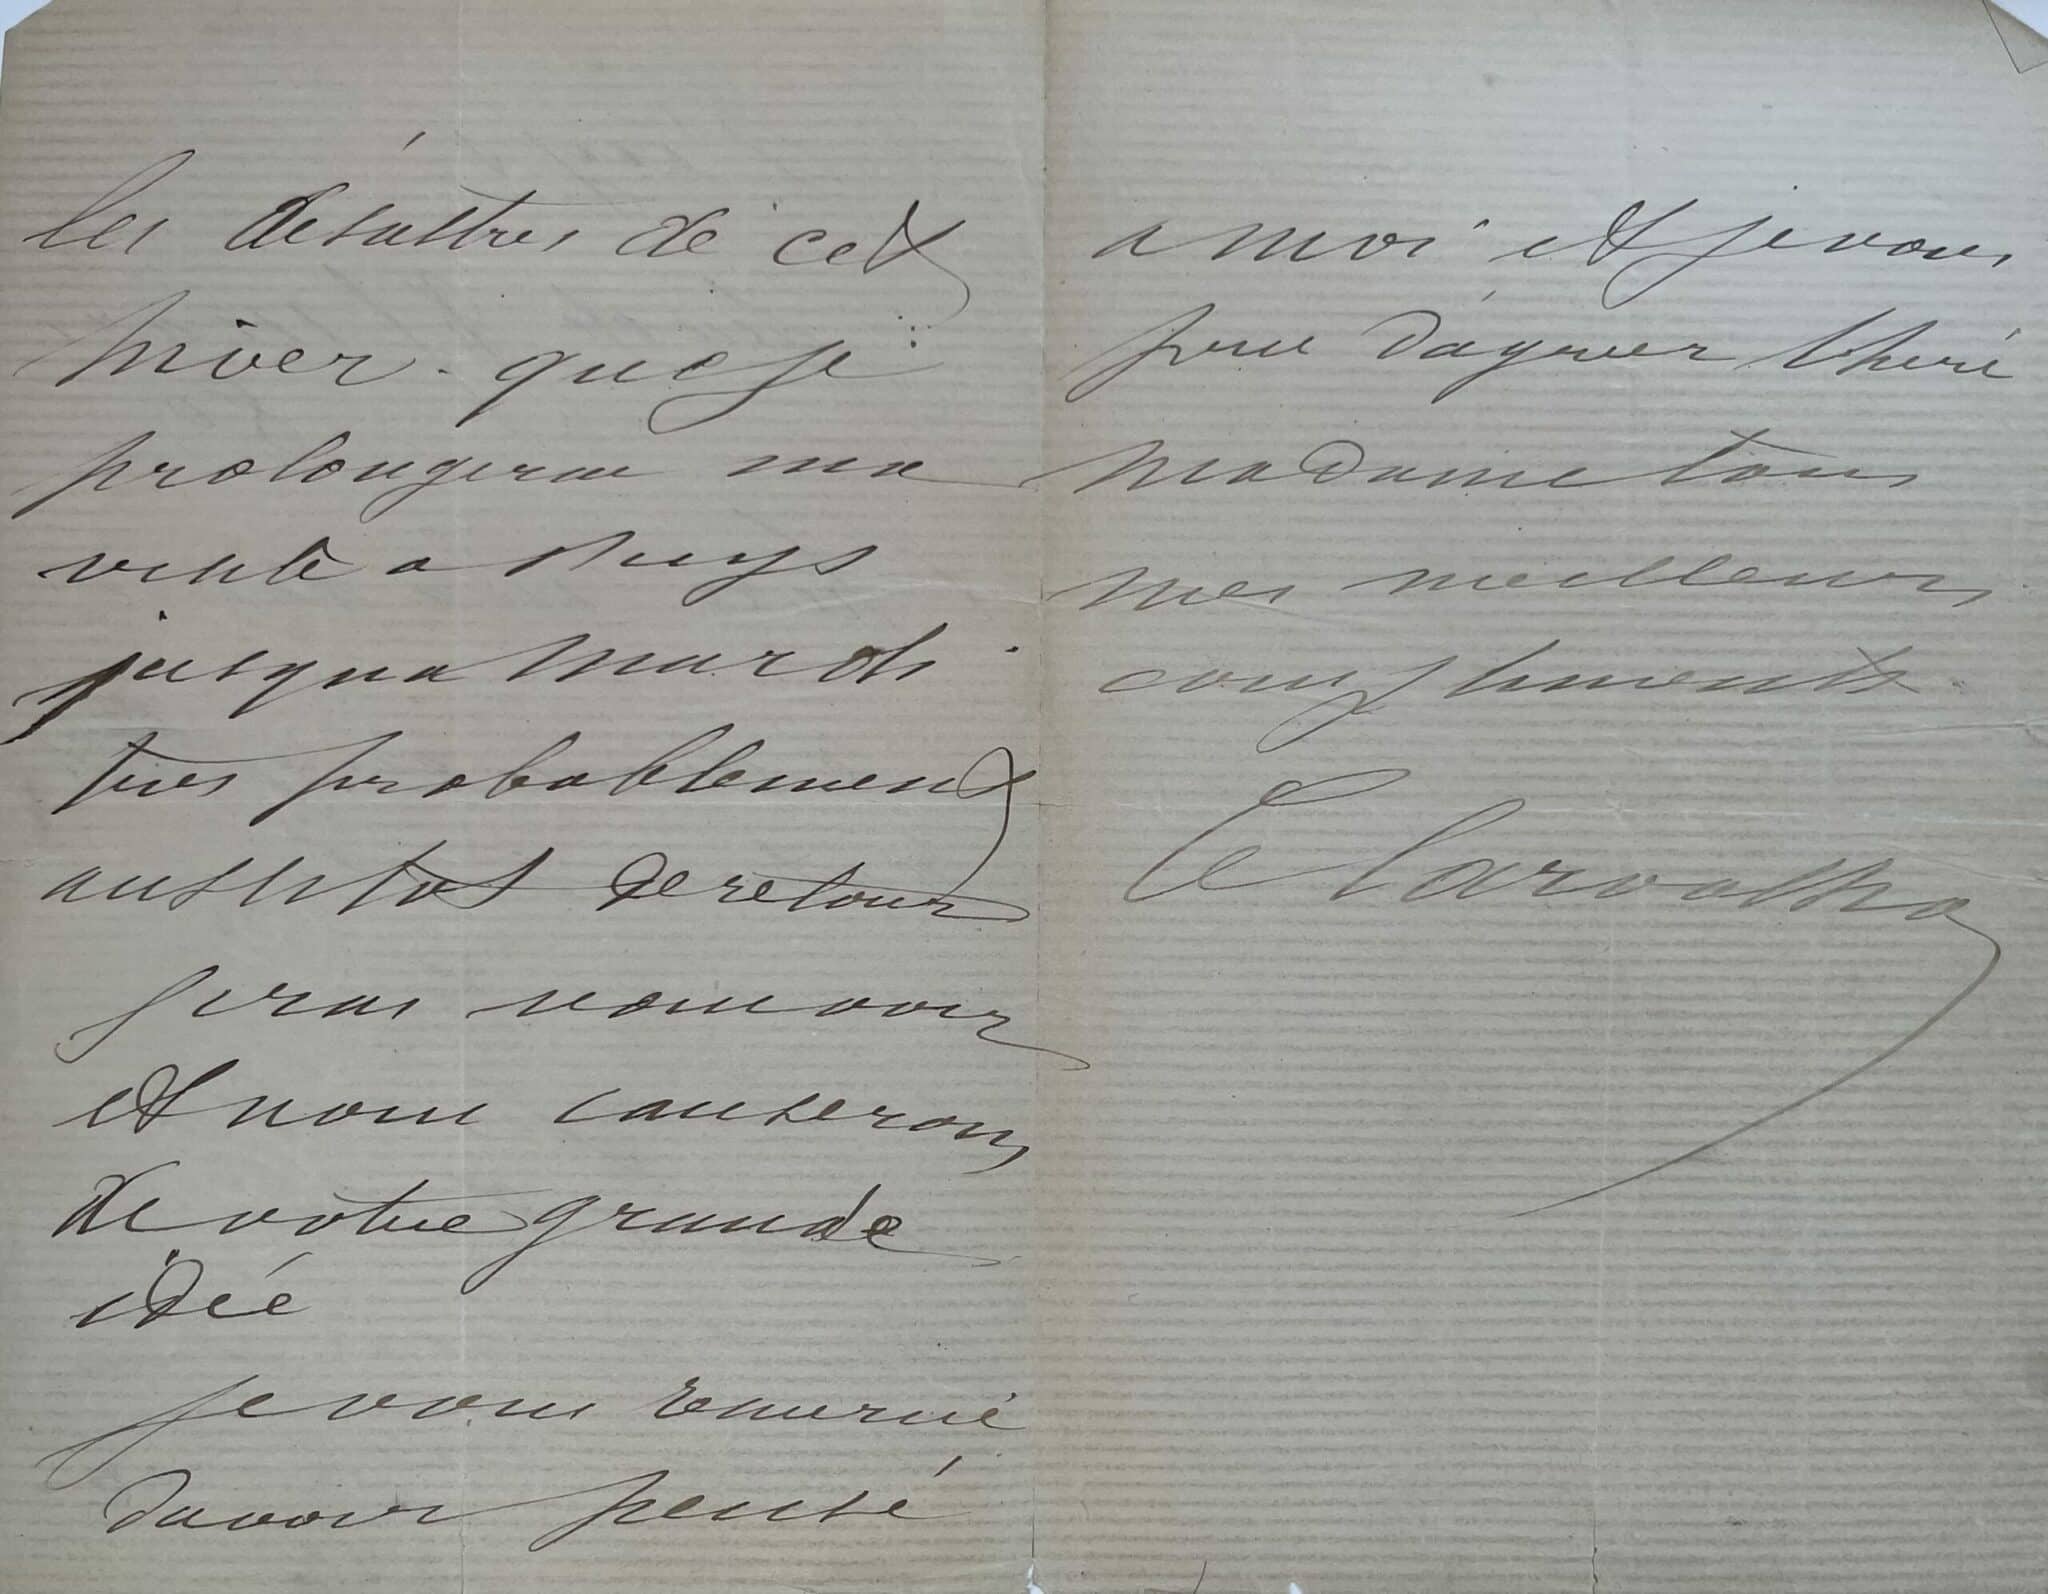 les désastres de cet
hiver. que je
prolongerai ma
visite a Puys
jusqua Mardi
tres probablement
aussitot de retour
jirai vous voir
et nous causerons
de votre grande
idée
je vous remercie
davoir pensé
a moi et je vous
prie d'agréer Chère
Madame tous
mes meilleurs
compliments
C Carvalho